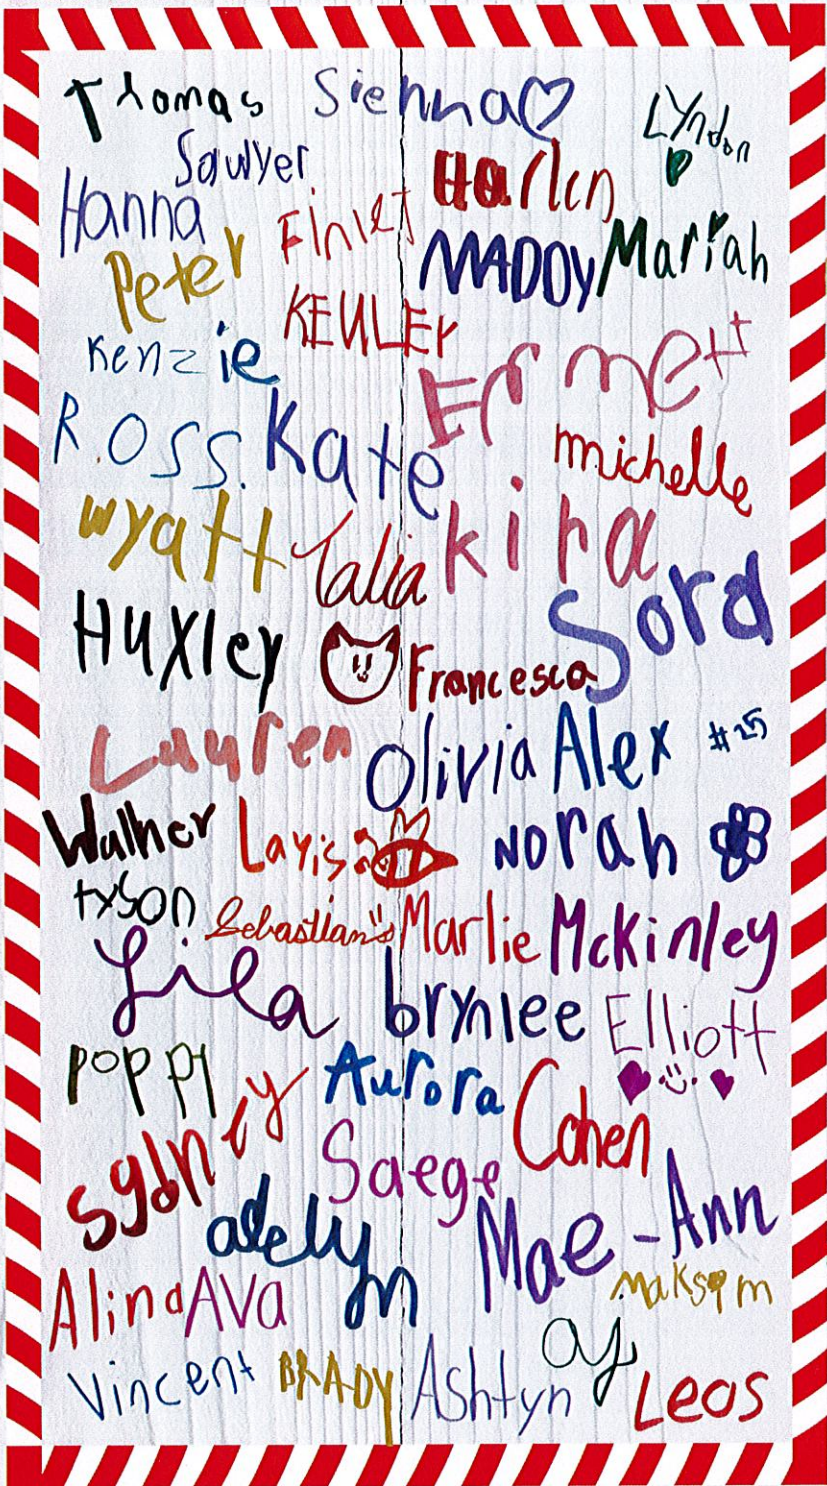 Thomas Sienna Lyndon
Sawyer
Hanna Finley Harlen
Peter MADDY Mariah
KEULER
Kenzie Ermett
R.OSS. Kate michelle
wyatt Talia kira
Huxley Francesca Sora
Lauren Olivia Alex #25
Walker Layis Norah
tyson Sebastian Marlie McKinley
Lila brynlee Elliott
POPPY Aurora
Sydney Saege Cohen
adelyn Mae-Ann
Alina Ava Maksym
Vincent BRADY Ashtyn aj Leos